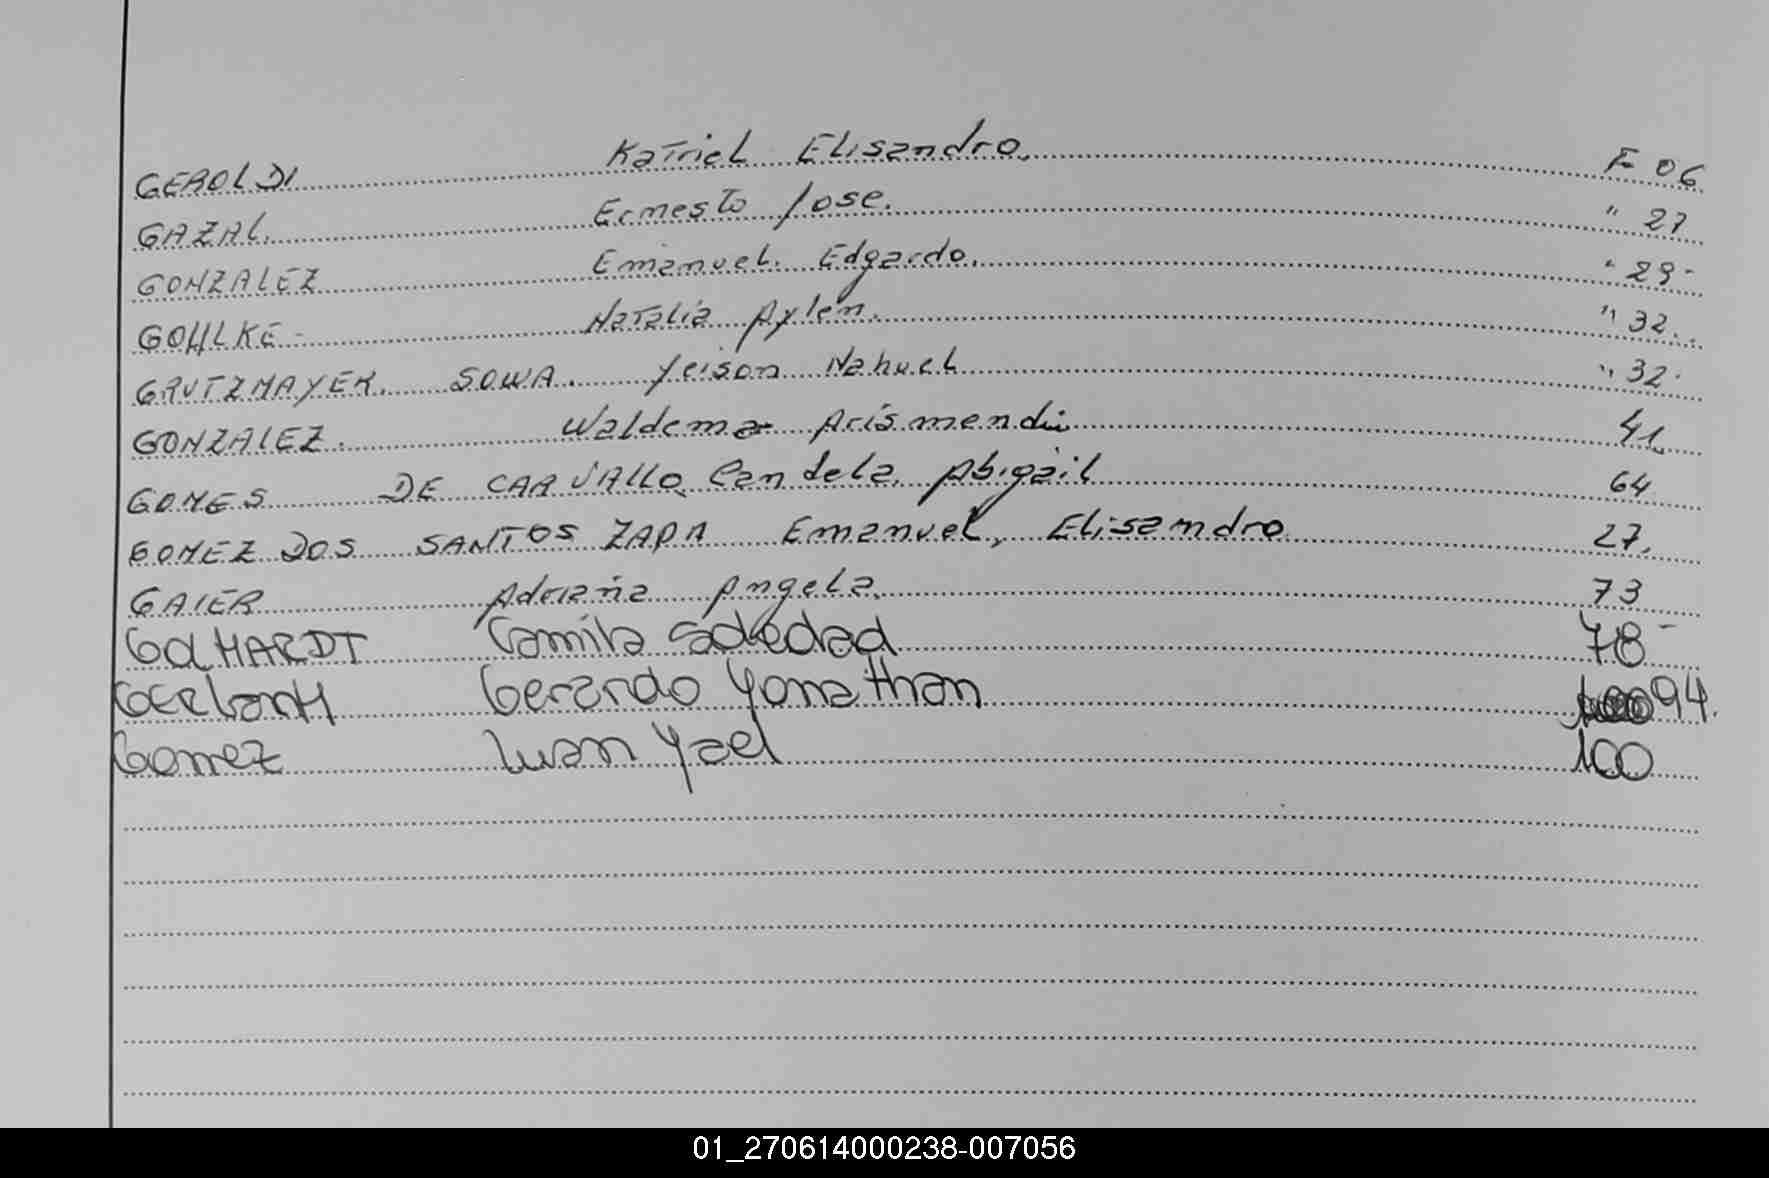 GEROLDI Katriel Elisandro. F 06
GAZAL. Ernesto Jose. " 27
GONZALEZ Emanuel. Edgardo. " 29-
GOHLKE- Natalia Aylen. " 32.
GRUTZMAYER. SOWA. Yeison Nahuel " 32.
GONZALEZ. Waldema Arismendi 41.
GOMES DE CARVALLO. Candela. Abigail 64
GOMEZ DOS SANTOS ZAPA Emanuel, Elisandro 27.
GAIER Adriana Angela. 73
GOLHARDT Camila Soledad 78-
Gerardo Yonathan 94.
Gomez Iuan Yael 100
01_270614000238-007056